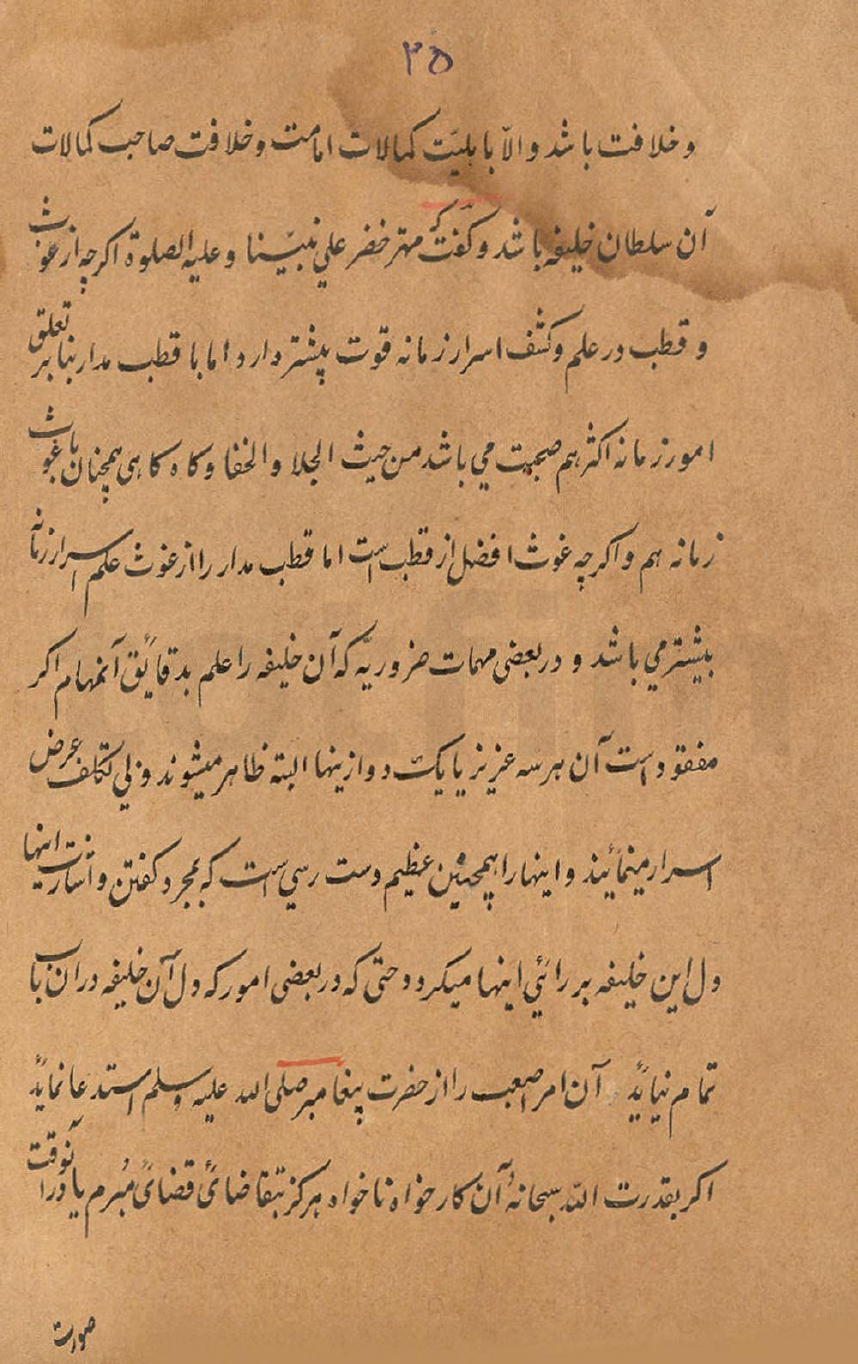 ۳۵
و خلافت باشد و الّا بابلیّت کمالات امامت و خلافت صاحب کمالات
آن سلطان خلیفه باشد و گفت که مهتر خضر علی نبیّنا و علیه الصلوة اکرچه از غوث
و قطب در علم و کشف اسرار زمانه قوت پیشتر دارد اما با قطب مدار بنابر تعلق
امور زمانه اکثر هم صحبت می باشد من حیث الجلا و الخفا و کاه کاهی همچنان با غوث
زمانه هم و اکرچه غوث افضل از قطب است اما قطب مدار را از غوث علم اسرار زمانه
بیشتر می باشد و در بعضی مهمات ضروریّه که آن خلیفه را علم بدقائق آنمهام اکر
مفقود است آن هر سه عزیز یا یک دو ازینها البته ظاهر میشوند و بی تکلف عرض
اسرار مینمائیند و اینها را همچنین عظیم دست رسی است که بمجرد کفتن و اشارت اینها
دل این خلیفه بر رائی اینها میکردد حتی که در بعضی امور که دل آن خلیفه در ان باب
تمام نیاید آن امر اصعب را از حضرت پیغامبر صلی الله علیه و سلم استدعا نماید
اکر بقدرت الله سبحانهٗ آن کار خواه ناخواه هرکز بتقاضائ قضائ مُبرم یا در آنوقت
صورت